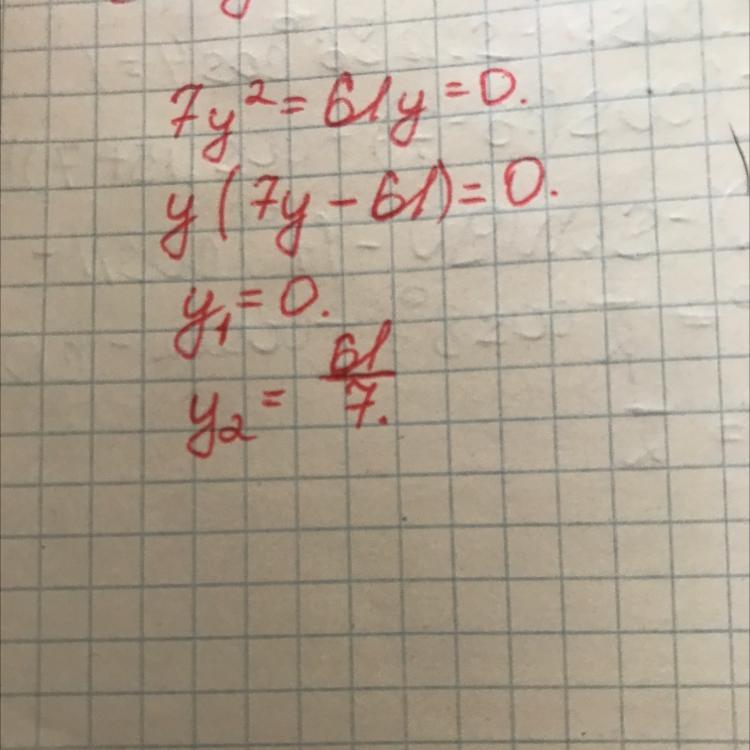 7y² = 61y = 0.
y(7y - 61) = 0.
y₁ = 0.
y₂ = 61/7.